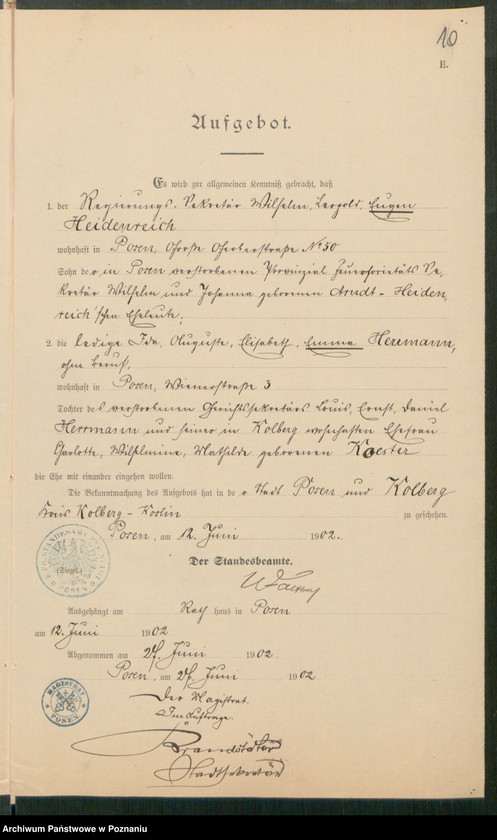 10
E.
Aufgebot.
Es wird zur allgemeinen Kenntniß gebracht, daß
1. der Regierungs-Sekretär Wilhelm, Leopold, Eugen
Heidenreich
wohnhaft in Posen, Große Gerberstraße No 50
Sohn der in Posen verstorbenen Provinzial Feuersozietäts Se-
kretär Wilhelm und Johanna geborenen Arndt - Heiden
reich'schen Eheleute;
2. die ledige Ida, Auguste, Elisabeth, Emma Herrmann,
ohne Beruf,
wohnhaft in Posen, Wienerstraße 3
Tochter des verstorbenen Gerichtssekretärs Louis, Ernst, Daniel
Herrmann und seiner in Kolberg wohnhaften Ehefrau
Charlotte, Wilhelmine, Mathilde geborenen Koester
die Ehe mit einander eingehen wollen.
Die Bekanntmachung des Aufgebots hat in der Stadt Posen und Kolberg
Kreis Kolberg - Köslin zu geschehen.
Posen, am 12. Juni 1902.
Der Standesbeamte.
(Siegel.)
POSEN
Ausgehängt am Rathhaus in Posen
am 12. Juni 1902
Abgenommen am 27. Juni 1902
Posen, am 27. Juni 1902
Der Magistrat.
Im Auftrage.
MAGISTRAT
POSEN
Brandstäter
Stadtsekretär
Archiwum Państwowe w Poznaniu